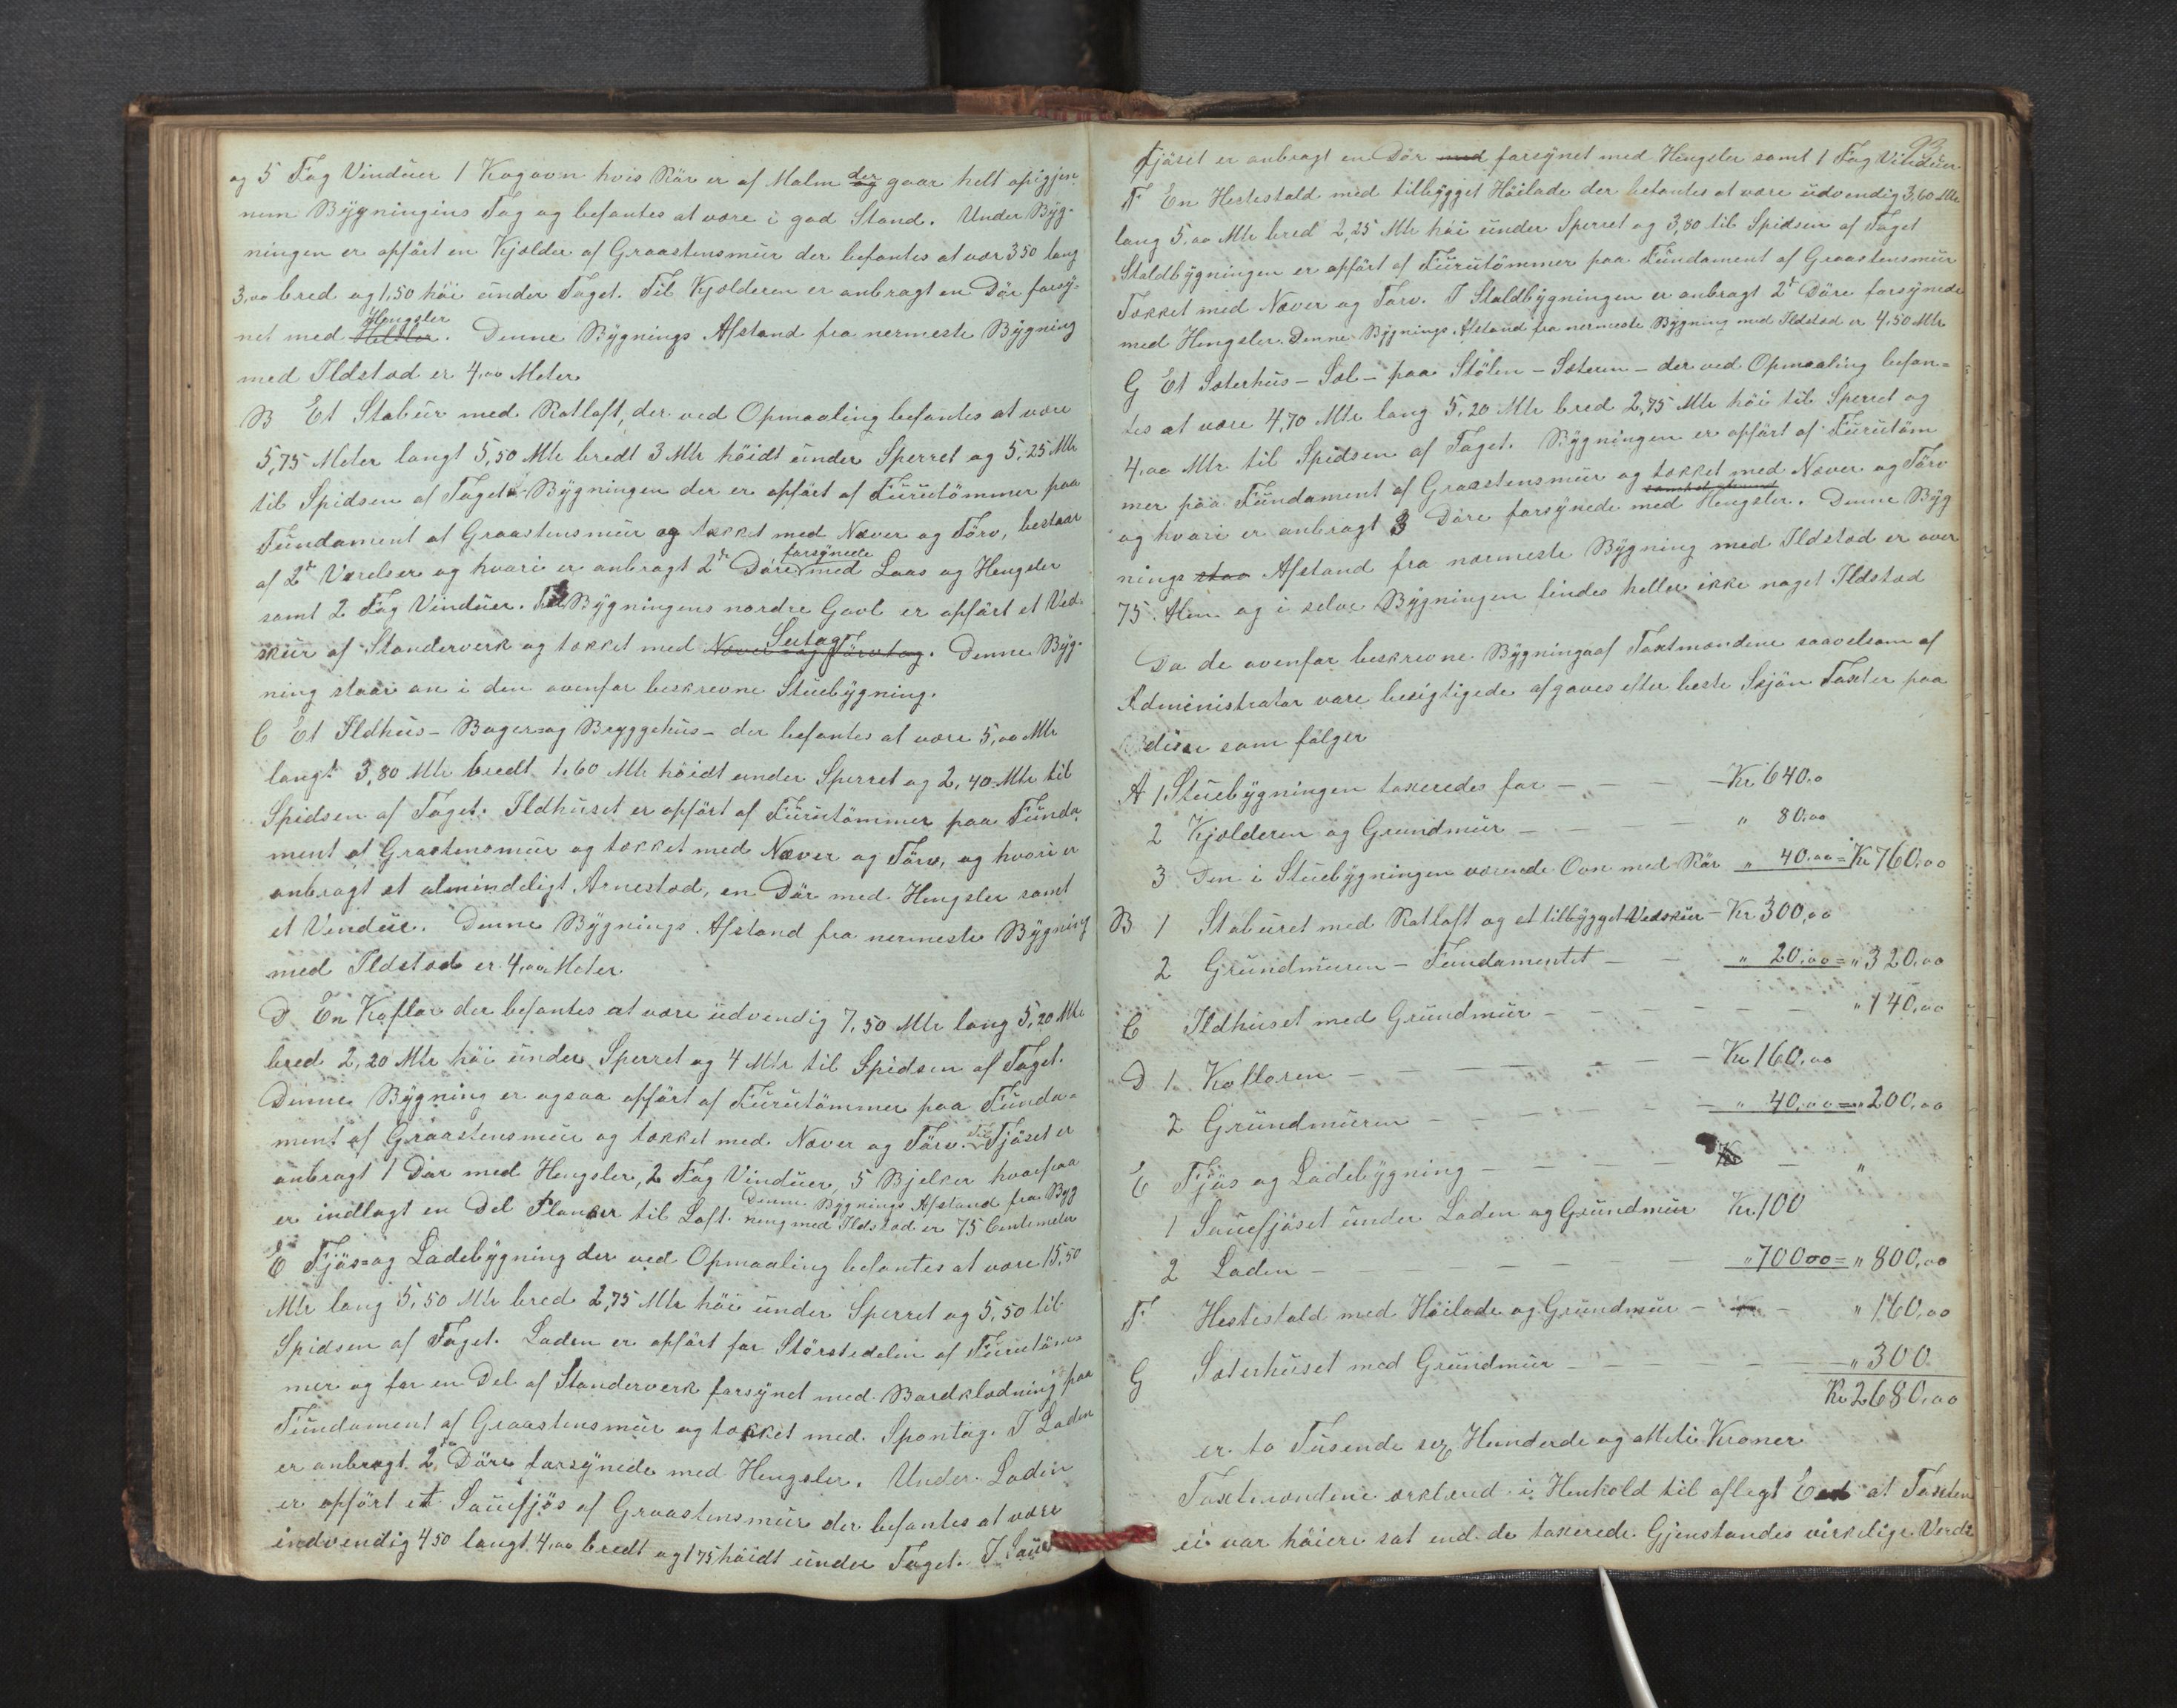 og 5 Fag Vinduer 1 Kogovn hvis Rör er af Malm der gaar helt opigjen-
nem Bygningens Tag og befantes at være i god Stand. Under Byg-
ningen er opfört en Kjælder af Graastensmur der befantes at vær 350 lang
3,00 bred og 1,50 höi under Taget. Til Kjælderen er anbragt en Dör forsy-
net med Hengsler. Denne Bygnings Afstand fra nermeste Bygning
med Ildstod er 4,00 Meter
B Et Stabur med Ratloft, der ved Opmaaling befantes at være
5,75 Meter langt 5,50 Mtr bredt 3 Mtr höidt under Sperret og 5,25 Mtr
til Spidsen af Taget. Bygningen der er opfört af Furutömmer paa
Fundament af Graastensmur og tækket med Næver og Törv, bestaar
af 2de Værelser og hvori er anbragt 2de Döre forsynede med Laas og Hengsler
samt 2 Fag Vinduer. Til Bygningens nordre Gavl er opfört et Ved-
skur af Standerverk og tækket med Næver og Törvtag Sutag. Denne Byg-
ning staar an i den ovenfor beskrevne Stuebygning.
C Et Ildhus - Bager og Bryggehus - der befantes at være 5,00 Mtr
langt 3,80 Mtr bredt 1,60 Mtr höidt under Sperret og 2,40 Mtr til
Spidsen af Taget. Ildhuset er opfört af Furutömmer paa Funda-
ment af Graatensmur og tækket med Næver og Törv, og hvori er
anbragt et almindeligt Arnestod, en Dör med Hengsler samt
et Vindue. Denne Bygnings Afstand fra nermeste Bygning
med Ildstod er 4,00 Meter
D En Koflor der befantes at være udvendig 7,50 Mtr lang 5,20 Mtr
bred 2,20 Mtr höi under Sperret og 4 Mtr til Spidsen af Taget.
Denne Bygning er ogsaa opfört af Furutömmer paa Funda-
ment af Graastensmur og tækket med Næver og Törv. Til Fjöset er
anbragt 1 Dör med Hengsler, 2 Fag Vinduer, 5 Bjelker hvorpaa
er indlagt en Del Planker til Loft. Denne Bygnings Afstand fra Byg
ning med Ildstod er 75 Centimeter
E Fjös= og Ladebygning der ved Opmaaling befantes at være 15,50
Mtr lang 5,50 Mtr bred 2,75 Mtr höi under Sperret og 5,50 til
Spidsen af Taget. Laden er opfört for Störstedelen af Furutöm-
mer og for en Del af Standerverk forsynet med Bordklædning paa
Fundament af Graastensmur og tækket med Spontag. I Laden
er anbragt 2de Döre forsynede med Hengsler. Under Laden
er opfört et Sauefjös af Graastensmur der befantes at være
indvendig 450 langt 4,00 bredt og 175 höidt under Taget. I Saue
93
fjöset er anbragt en Dör med forsynet med Hengsler samt 1 Fag Vinduer
F En Hestestald med tilbygget Höilade der befantes at være udvendig 3,60 Mtr
lang 5,00 Mtr bred 2,25 Mtr höi under Sperret og 3,80 til Spidsen af Taget
Staldbygningen er opfört af Furutömmer paa Fundament af Graastensmur
Tækket med Næver og Törv. I Staldbygningen er anbragt 2de Döre forsynede
med Hengsler. Denne Bygnings Afstand fra nermeste Bygning med Ildstod er 4,50 Mtr
G Et Sæterhus - Sel - paa Stölen - Sæteren - der ved Opmaaling befan=
tes at være 4,70 Mtr lang 5,20 Mtr bred 2,75 Mtr höi til Sperret og
4,00 Mtr til Spidsen af Taget. Bygningen er opfört af Furutöm
mer paa Fundament af Graastensmur og tækket med Næver og Törv
og hvori er anbragt 3 Döre forsynede med Hengsler. Denne Byg
nings staa Afstand fra nærmeste Bygning med Ildstod er over
75 Alen og i selve Bygningen findes heller ikke noget Ildstod
Da de ovenfor beskrevne Bygninga af Taxtmændene saavelsom af
Administrator vare besigtigede afgaves efter beste Skjön Taxter paa
disse som fölger
A 1. Stuebygningen taxeredes for - - - Kr. 640.0
2 Kjælderen og Grundmur - - - " 80.00
3 Den i Stuebygningen værende Ovn med Rör " 40.00 = Kr 760,00
B 1 Staburet med Ratloft og et tilbygget Vedskur - Kr 300,00
2 Grundmuren - Fundamentet - - " 20,00 = " 320,00
C Ildhuset med Grundmur - - - - " 140,00
D 1. Kofloren - - - - - Kr 160,00
2 Grundmuren - - - - " 40,00 = " 200,00
E Fjös og Ladebygning - - - - "
1 Sauefjöset under Laden og Grundmur Kr. 100
2 Laden - - - - - " 70000 = " 800,00
F. Hestestald med Höilade og Grundmur - - " 160,00
G Sæterhuset med Grundmur - - - " 300
Kr 2680,00
er to Tusende sex Hunderde og otteti Kroner
Taxtmændene erklæred i Henhold til aflagt Eed at Taxten
ei var höiere sat end de taxerede Gjenstandes virkelige Verdi